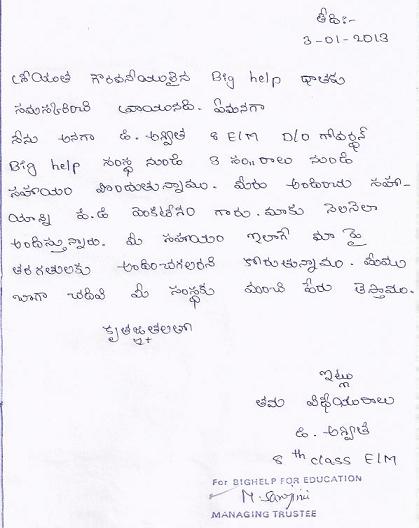 తేది:-
3-01-2013
శ్రీయుత గౌరవనీయులైన Big help దాతకు
నమస్కరించి వ్రాయునది. ఏమనగా
నేను అనగా డి. అన్విత 8 E/M D/O గోవర్ధన్
Big help సంస్థ నుండి 3 సం,,రాలు నుండి
సహాయం పొందుతున్నాము. మీరు అందించు సహా-
యాన్ని పి.డి వెంకటేశం గారు. మాకు నెలనెలా
అందిస్తున్నారు. మీ సహాయం ఇలాగే మా పై
తరగతులకు అందించగలరని కోరుతున్నాము. మేము
బాగా చదివి మీ సంస్థకు మంచి పేరు తెస్తాము.
కృతజ్ఞతలతో
ఇట్లు
తమ విధేయురాలు
డి. అన్విత
8th class E/M
For BIGHELP FOR EDUCATION
MANAGING TRUSTEE